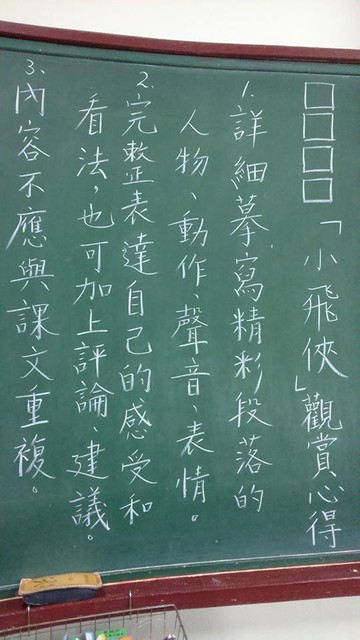 □□□□「小飛俠」觀賞心得
1.詳細摹寫精彩段落的
人物、動作、聲音、表情。
2.完整表達自己的感受和
看法,也可加上評論、建議。
3.內容不應與課文重複。